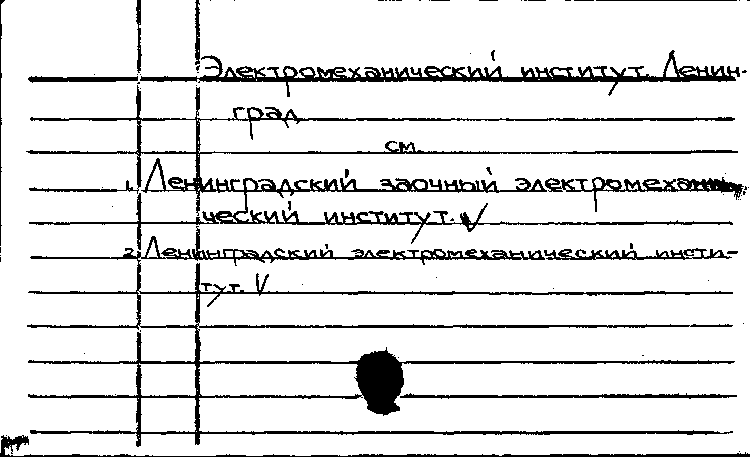 Электромеханический институт. Ленин-
град
см.
1. Ленинградский заочный электромехани
ческий институт. V
2. Ленинградский электромеханический инсти-
тут. V